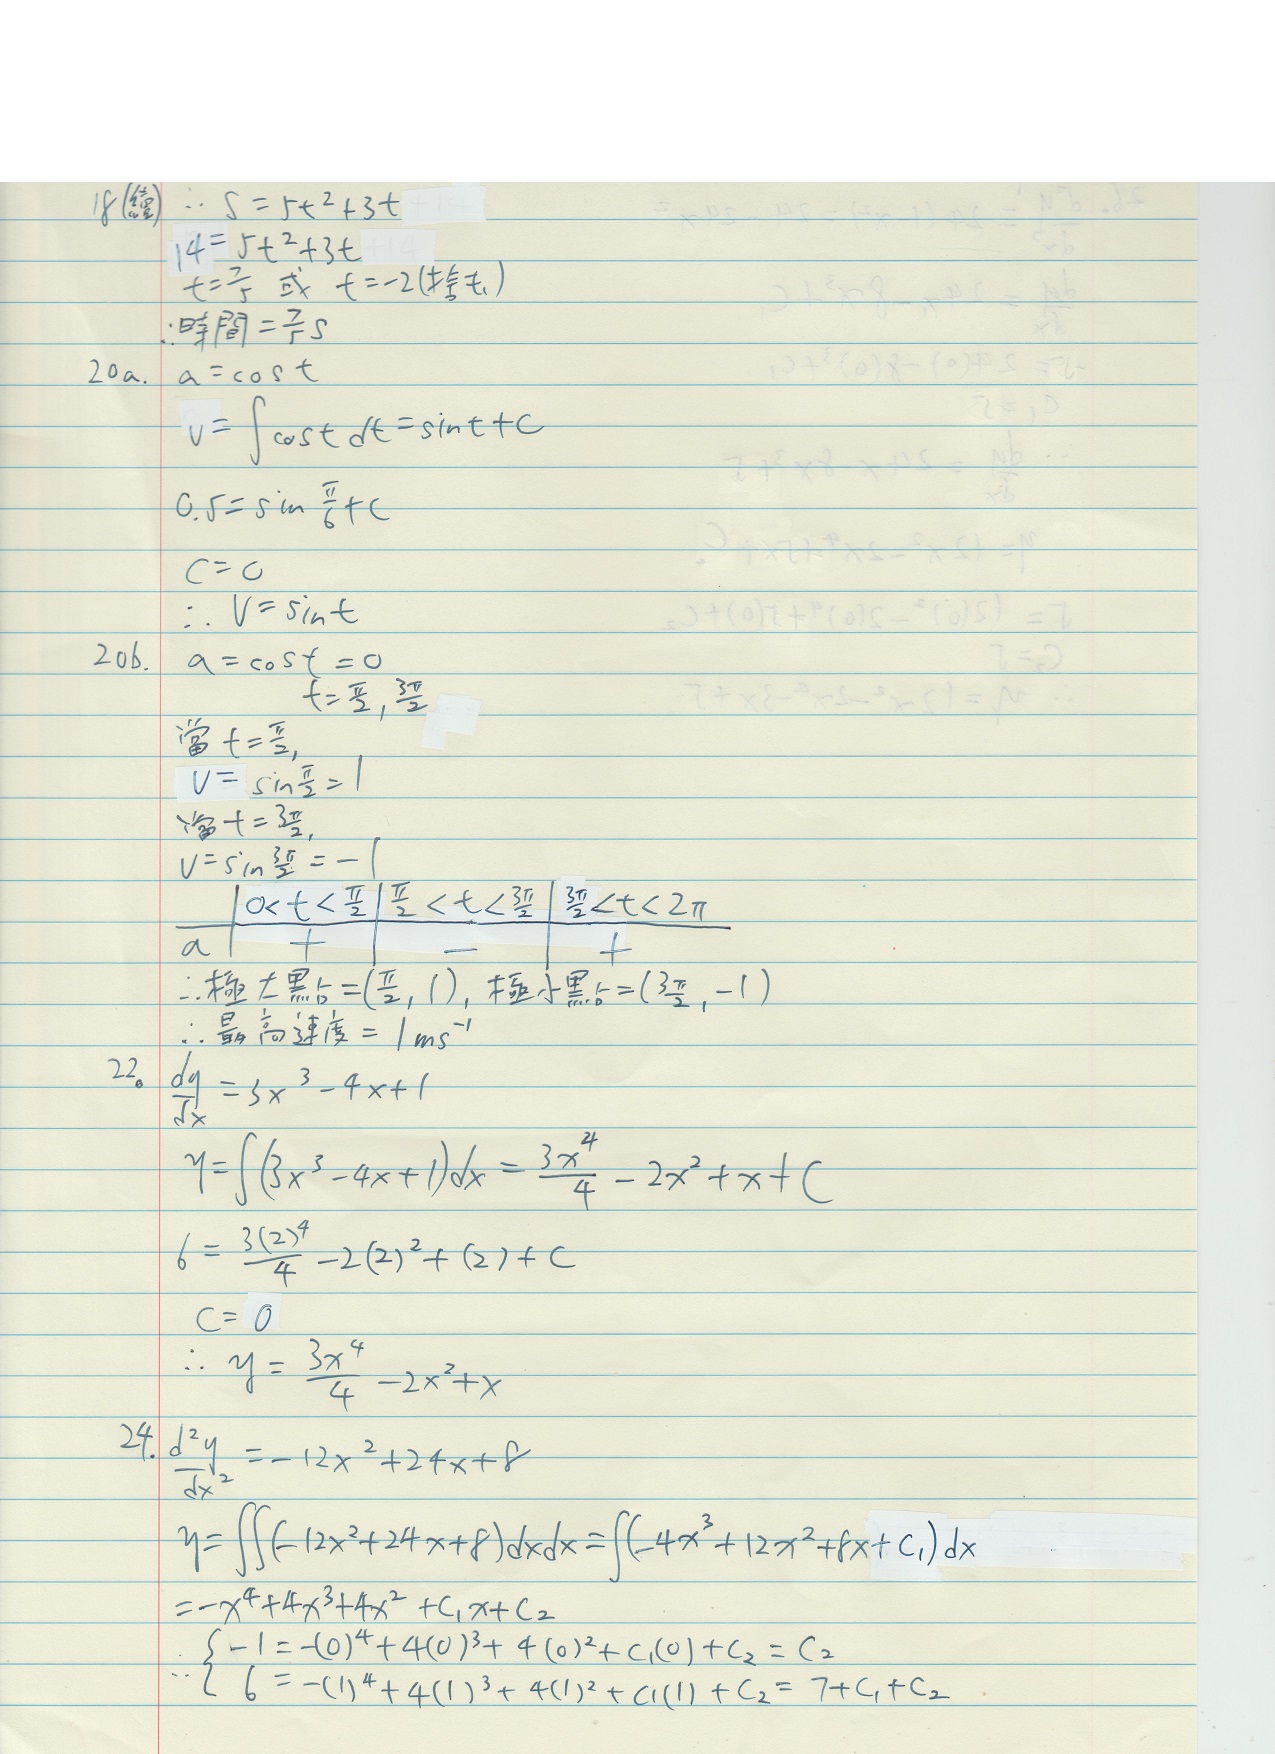 18(續) ∴ S = 5t² + 3t
14 = 5t² + 3t
t = 7/5 或 t = -2 (捨去)
∴時間 = 7/5 s
20a. a = cos t
v = ∫ cos t dt = sin t + C
0.5 = sin π/6 + C
C = 0
∴ V = sin t
20b. a = cos t = 0
t = π/2, 3π/2
當 t = π/2,
v = sin π/2 = 1
當 t = 3π/2,
v = sin 3π/2 = -1
0 < t < π/2 | π/2 < t < 3π/2 | 3π/2 < t < 2π
a | + | - | +
∴極大點 = (π/2, 1), 極小點 = (3π/2, -1)
∴最高速度 = 1 ms⁻¹
22. dy/dx = 3x³ - 4x + 1
y = ∫(3x³ - 4x + 1)dx = 3x⁴/4 - 2x² + x + C
6 = 3(2)⁴/4 - 2(2)² + (2) + C
C = 0
∴ y = 3x⁴/4 - 2x² + x
24. d²y/dx² = -12x² + 24x + 8
y = ∫∫(-12x² + 24x + 8)dxdx = ∫(-4x³ + 12x² + 8x + C₁)dx
= -x⁴ + 4x³ + 4x² + C₁x + C₂
∵ { -1 = -(0)⁴ + 4(0)³ + 4(0)² + C₁(0) + C₂ = C₂
6 = -(1)⁴ + 4(1)³ + 4(1)² + C₁(1) + C₂ = 7 + C₁ + C₂